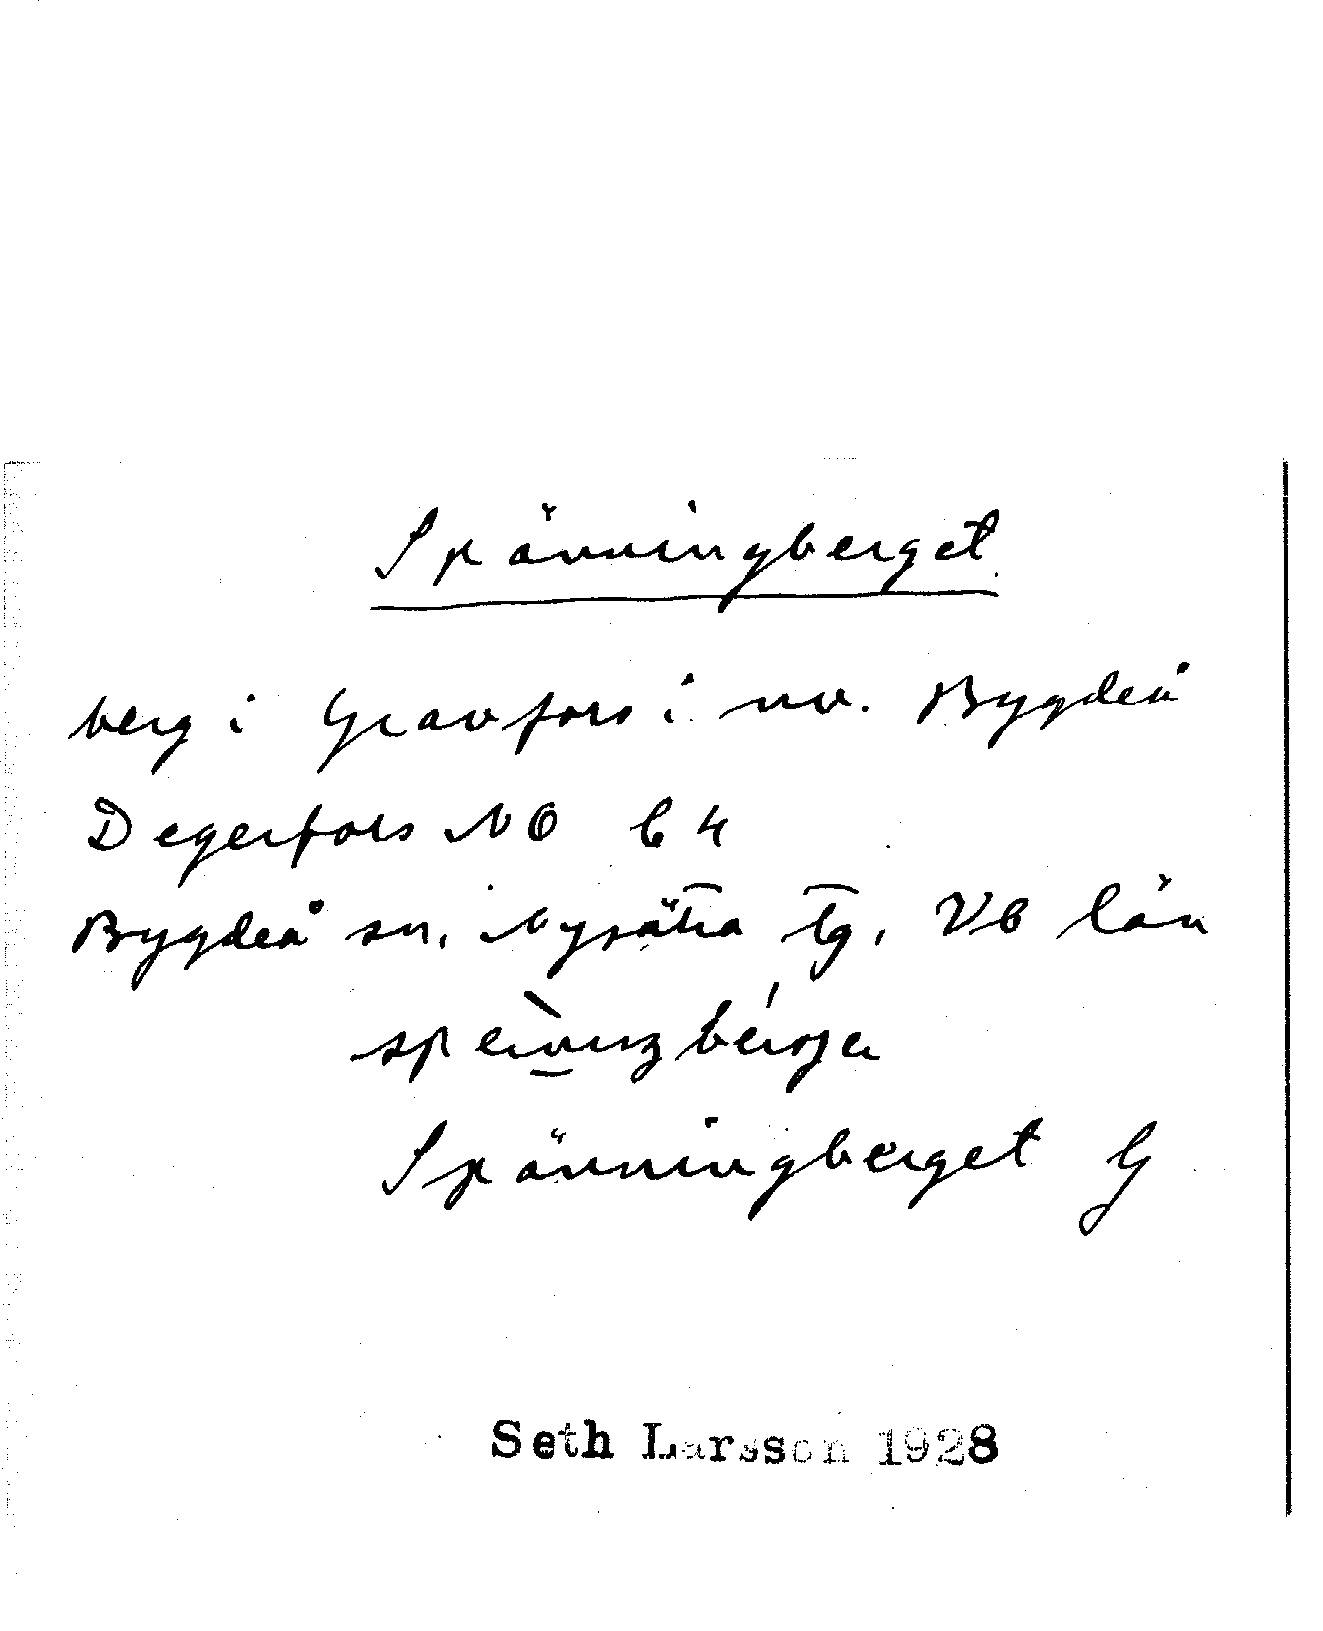 Spänningberget
berg i Gravfors i nv. Bygdeå
Degerfors NO b 4
Bygdeå sn, Nysätra tg, VB län
Spänningberget G
Seth Larsson 1928